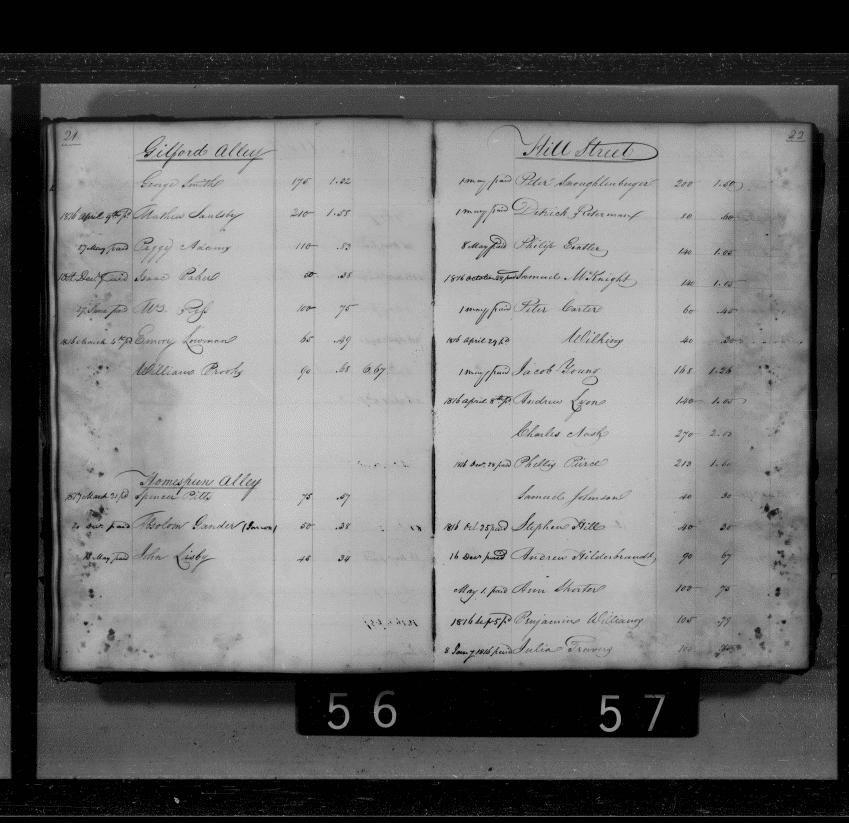 21
Gilford Alley
George Smith 175 1.32
1816 April 9th pd Mathew Saulsby 210 1.55
27 May paid Peggy Adams 110 .83
Isaac 50 .38
27 June paid Wm. Ross 100 75
1816 March 4th pd Emory Lowman 65 .49
William Brooks 90 .68 6.67
Homespun Alley
1817 March 31 pd Spencer Pitts 75 .57
paid Absolom Gander 50 .38
May paid John Lisby 45 34
22
Hill Street
1 may paid Peter 200 1.50
1 may paid Peterman 80 .60
8 May paid Philip 140 1.05
1816 October 28 pd Samuel McKnight 140 1.05
1 may paid Peter Carter 60 .45
1816 April 24 pd Wilkins 40 .30
1 may paid Jacob Young 168 1.26
1816 April 8th pd Andrew Lyon 140 1.05
Charles Nash 270 2.03
1816 paid Phillis 213 1.60
Samuel Johnson 40 30
1816 Oct 25 paid Stephen Hill 40 30
16 Decr paid Andrew Hilderbrandt 90 67
May 1. paid Ann Shorter 100 75
1816 Sep 5 pd Benjamin Williams 105 .79
8 1816 paid Julia Travers 100
56 57